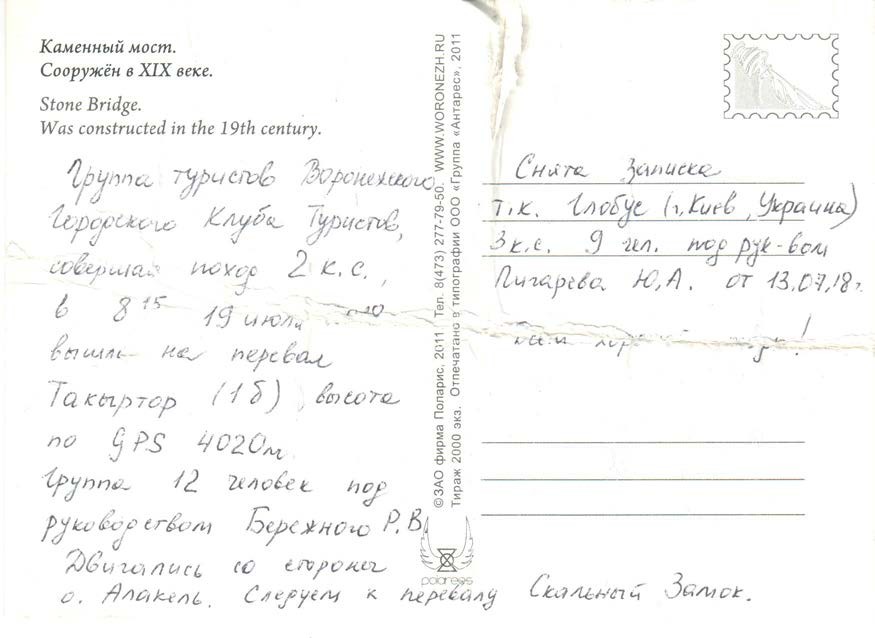 Каменный мост.
Сооружён в XIX веке.
Stone Bridge.
Was constructed in the 19th century.
Группа туристов Воронежского
Городского Клуба Туристов,
совершая поход 2 к.с.,
в 8 15 19 июля
вышли на перевал
Такыртор (1б), высота
по GPS 4020м.
Группа 12 человек под
руководством Бережного Р.В.
Двигались со стороны
о. Алакель. Следуем к перевалу Скальный Замок.
©ЗАО фирма Поларис, 2011 Тел. 8(473) 277-79-50. WWW.WORONEZH.RU
Тираж 2000 экз. Отпечатано в типографии ООО «Группа «Антарес», 2011
polaress
Снята записка
т.к. Глобус (г. Киев, Украина)
3 к.с. 9 чел. под рук-вом
Пигарева Ю.А. от 13.07.18г.